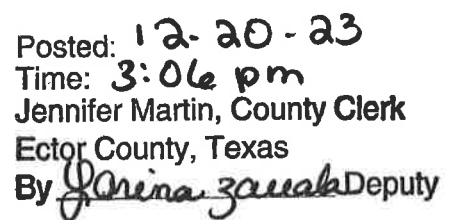 Posted: 12-20-23
Time: 3:06 pm
Jennifer Martin, County Clerk
Ector County, Texas
By Deputy